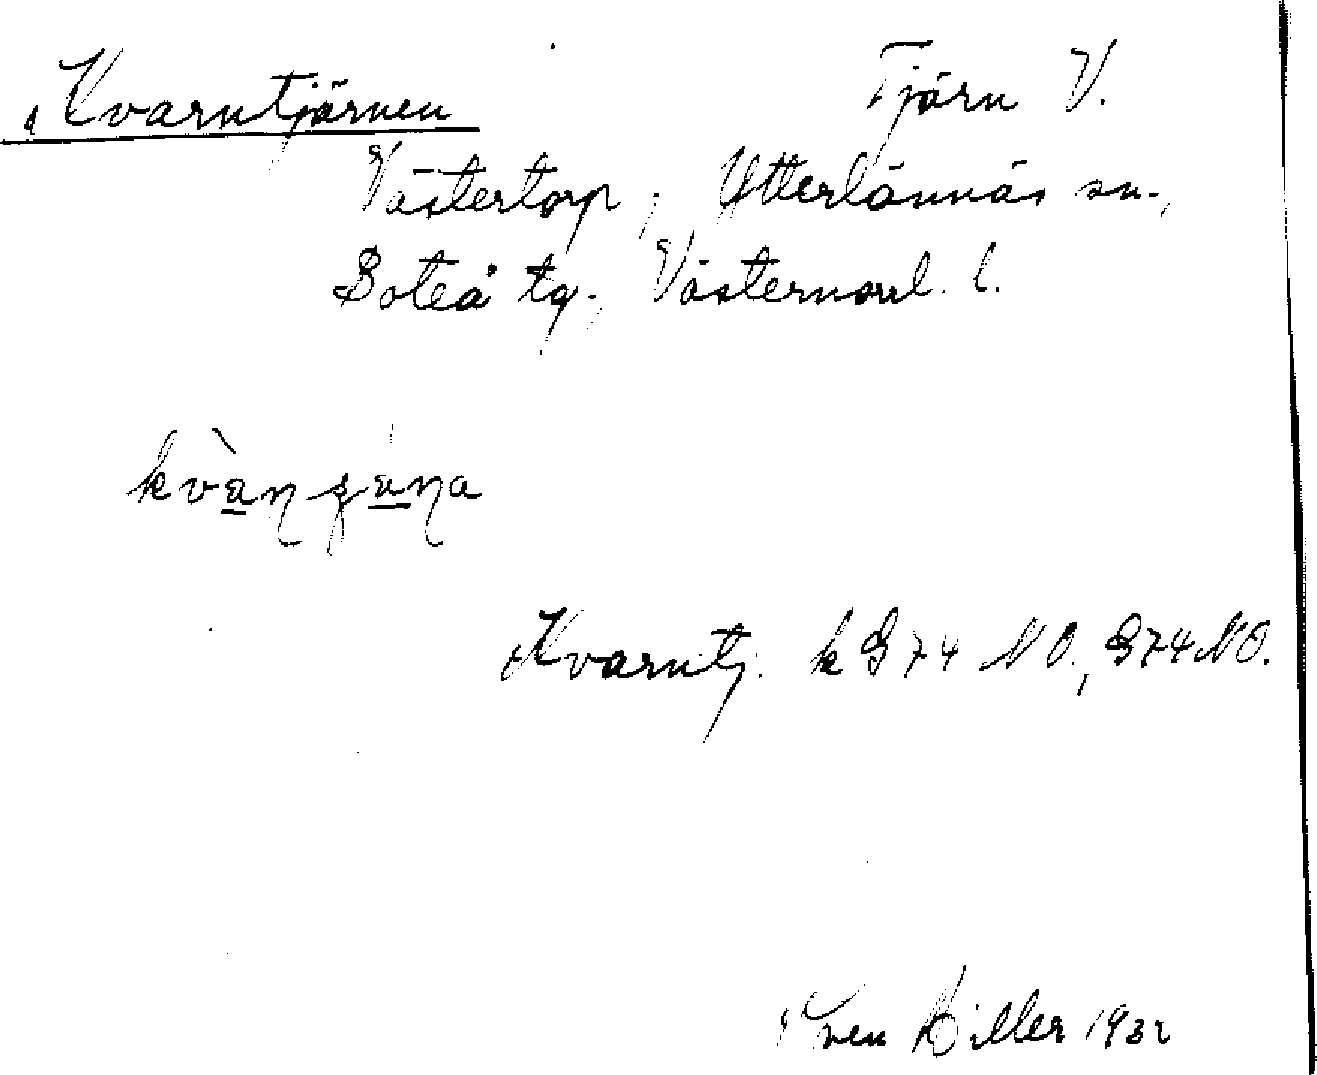 Kvarntjärnen Tjärn V.
Västertorp, Ytterlännäs sn.,
Boteå tg., Västernorrl. l.
Kvarntj. k G74 NO., G74 NO.
Sven Hiller 1932